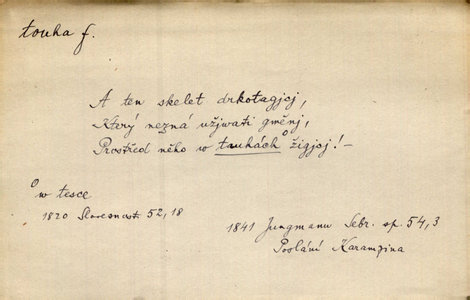 touha f.
A ten skelet drkotagjcj,
Který nezná užjwati gměnj,
Prostřed něho w tauhách žigjcj! –
w tesce
1820 Slovesnost 52, 18
1841 Jungmann Sebr. sp. 54, 3
Poslání Karamzina